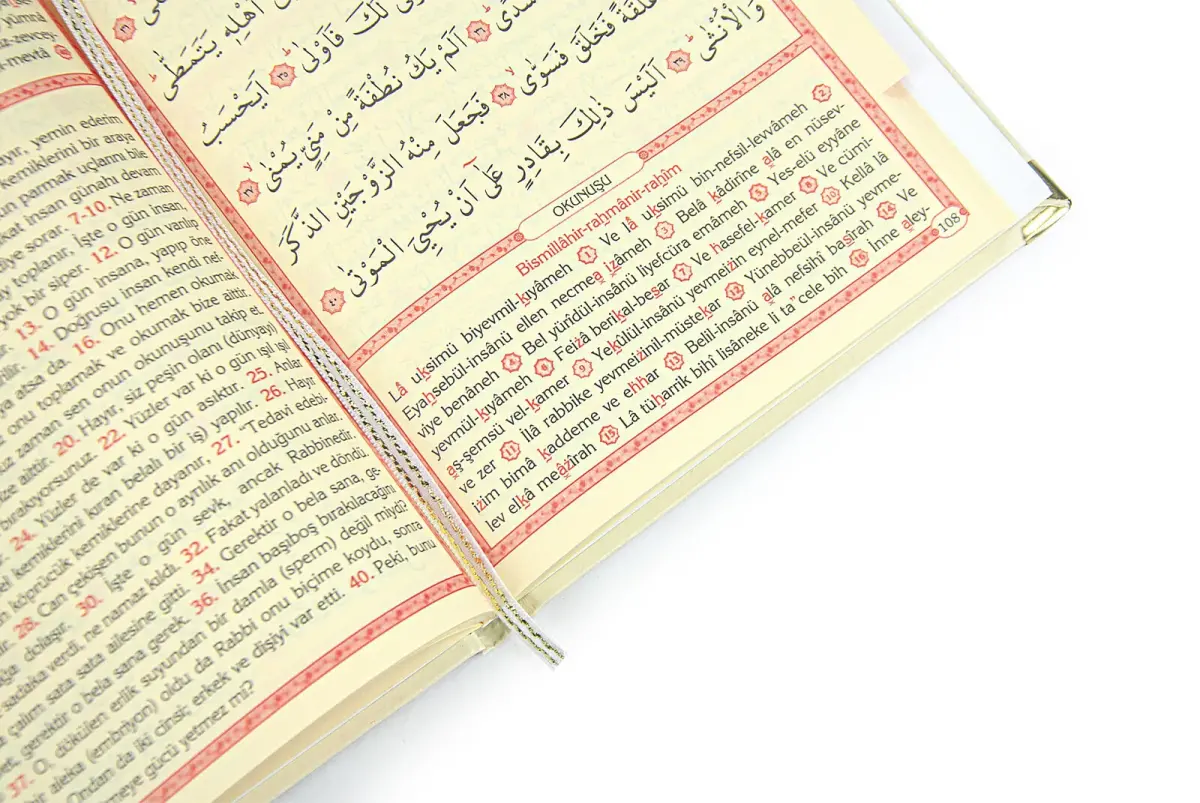 yümnâ
-mevtâ
hayır, yemin ederim
kemiklerini bir araya
parmak uçlarını bile
insan günahı devam
diye sorar. 7-10. Ne zaman
toplanır, İşte o gün insan,
yok bir siper. 12. O gün varılıp
13. O gün insana, yapıp öne
14. Doğrusu insan kendi nef-
atsa da. 16. Onu hemen okumak
onu toplamak ve okumak bize aittir.
zaman sen onun okunuşunu takip et.
aittir. 20. Hayır, siz peşin olanı (dünyayı)
bırakıyorsunuz. 22. Yüzler var ki o gün ışıl ışıl
24. Yüzler de var ki o gün asıktır. 25. Anlar
kemiklerini kıran belalı bir iş) yapılır. 26. Hayır
köprücük kemiklerine dayanır, 27. "Tedavi edebi-
28. Can çekişen bunun o ayrılık anı olduğunu anlar.
dolaşır. 30. İşte o gün sevk, ancak Rabbinedir.
sadaka verdi, ne namaz kıldı. 32. Fakat yalanladı ve döndü.
çalım sata sata ailesine gitti. 34. Gerektir o bela sana, ge-
gerektir o bela sana gerek. 36. İnsan başıboş bırakılacağını
37. O, dökülen erlik suyundan bir damla (sperm) değil miydi?
bir aleka (embriyon) oldu da Rabbi onu biçime koydu, sonra
Ondan da iki cinsi; erkek ve dişiyi var etti. 40. Peki, bunu
meye gücü yetmez mi?
اَهْلِهٖ يَتَمَطّٰىؕ ﴿٣٣﴾
لَكَ فَاَوْلٰىؕ ﴿٣٥﴾ اَيَحْسَبُ
سُدًىؕ ﴿٣٦﴾ اَلَمْ يَكُ نُطْفَةً مِنْ مَنِيٍّ يُمْنٰىۙ ﴿٣٧﴾
عَلَقَةً فَخَلَقَ فَسَوّٰىۙ ﴿٣٨﴾ فَجَعَلَ مِنْهُ الزَّوْجَيْنِ الذَّكَرَ
وَالْاُنْثٰىؕ ﴿٣٩﴾ اَلَيْسَ ذٰلِكَ بِقَادِرٍ عَلٰٓى اَنْ يُحْيِيَ الْمَوْتٰى ﴿٤٠﴾
OKUNUŞU
Bismillâhir-rahmânir-rahîm
Lâ uksimü biyevmil-kıyâmeh 1 Ve lâ uksimü bin-nefsil-levvâmeh 2
Eyahsebül-insânü ellen necmea izâmeh 3 Belâ kâdirîne alâ en nüsev-
viye benâneh 4 Bel yürîdül-insânü liyefcüra emâmeh 5 Yes-elü eyyâne
yevmül-kıyâmeh 6 Feizâ berikal-besar 7 Ve hasefel-kamer 8 Ve cümi-
aş-şemsü vel-kamer 9 Yekûlül-insânü yevmeizin eynel-mefer 10 Kellâ lâ
ve zer 11 İlâ rabbike yevmeizinil-müstekar 12 Yünebbeül-insânü yevme-
izim bimâ kaddeme ve ehhar 13 Belil-insânü alâ nefsihî basîrah 14 Ve
lev elkâ meâzîrah 15 Lâ tüharrik bihî lisâneke li ta"cele bih 16 İnne aley-
108